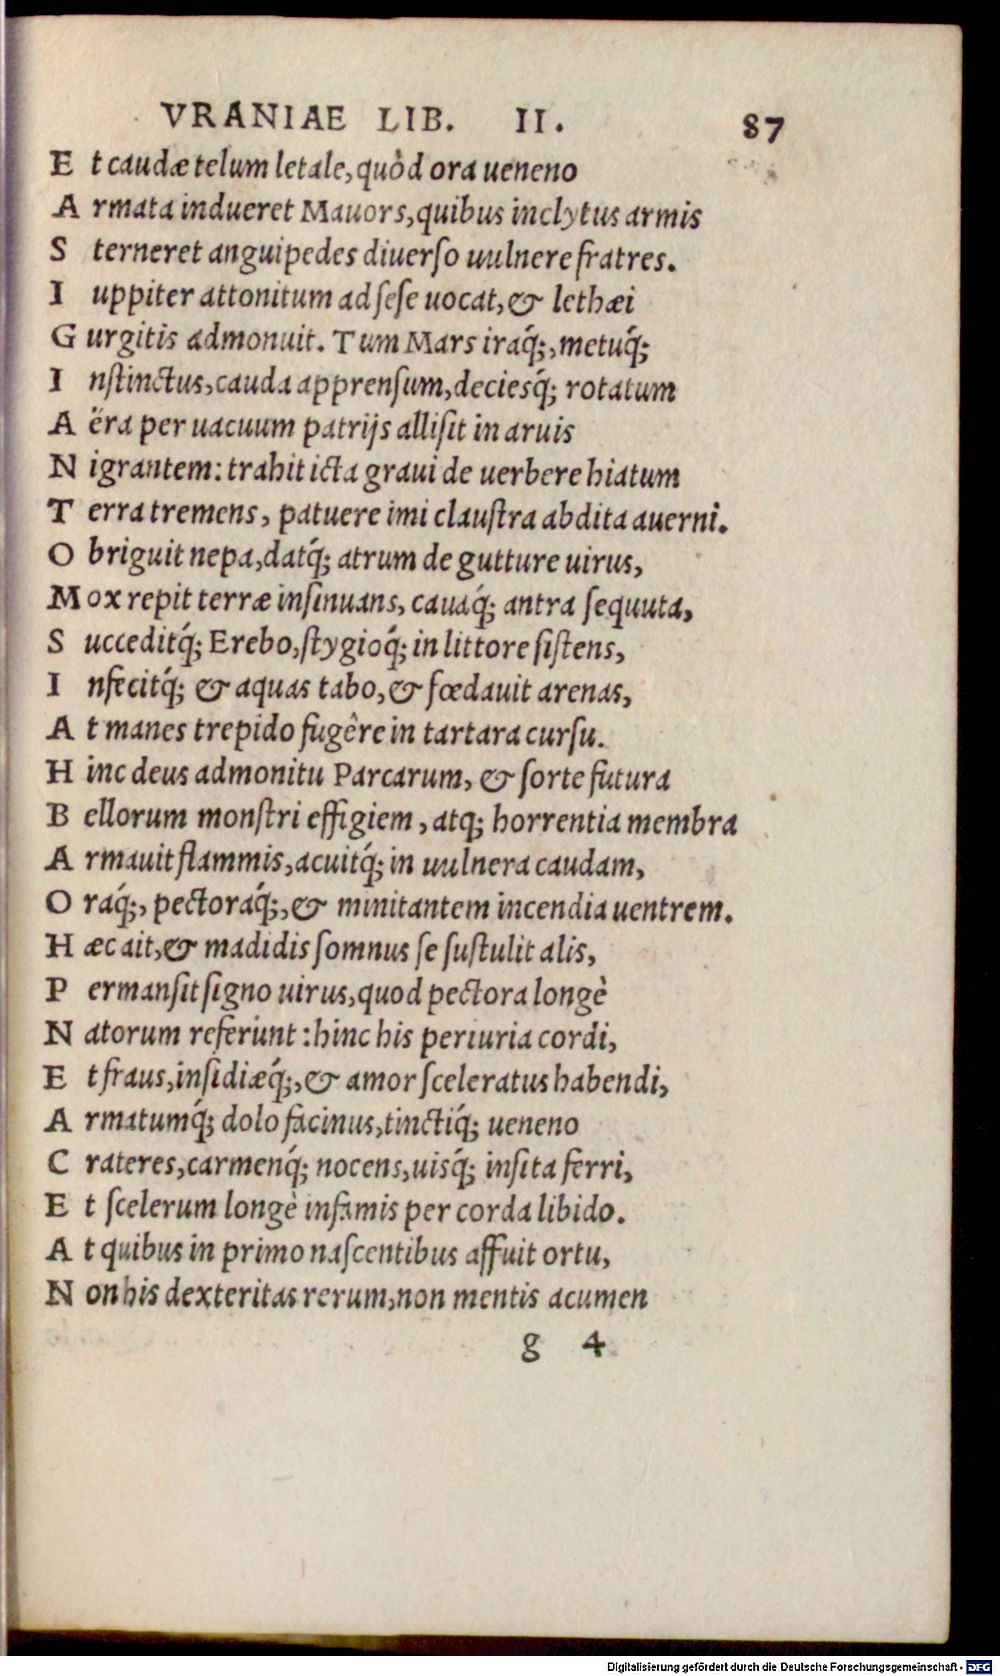 VRANIAE LIB. II. 87
E t caudæ telum letale, quòd ora ueneno
A rmata indueret Mauors, quibus inclytus armis
S terneret anguipedes diuerſo uulnere fratres.
I uppiter attonitum ad ſeſe uocat, & lethæi
G urgitis admonuit. Tum Mars iraq́;, metuq́;
I nſtinctus, cauda apprenſum, deciesq́; rotatum
A ëra per uacuum patrijs alliſit in aruis
N igrantem: trahit icta graui de uerbere hiatum
T erra tremens, patuere imi clauſtra abdita auerni.
O briguit nepa, datq́; atrum de gutture uirus,
M ox repit terræ inſinuans, cauaq́; antra ſequuta,
S ucceditq́; Erebo, ſtygioq́; in littore ſiſtens,
I nfecitq́; & aquas tabo, & fœdauit arenas,
A t manes trepido fugêre in tartara curſu.
H inc deus admonitu Parcarum, & ſorte futura
B ellorum monſtri effigiem, atq; horrentia membra
A rmauit flammis, acuitq́; in uulnera caudam,
O raq́;, pectoraq́;, & minitantem incendia uentrem.
H æc ait, & madidis ſomnus ſe ſuſtulit alis,
P ermanſit ſigno uirus, quod pectora longè
N atorum referunt: hinc his periuria cordi,
E t fraus, inſidiæq́;, & amor ſceleratus habendi,
A rmatumq́; dolo facinus, tinctiq́; ueneno
C rateres, carmenq́; nocens, uisq́; inſita ferri,
E t ſcelerum longè infamis per corda libido.
A t quibus in primo naſcentibus affuit ortu,
N on his dexteritas rerum, non mentis acumen
g 4
Digitalisierung gefördert durch die Deutsche Forschungsgemeinschaft - DFG